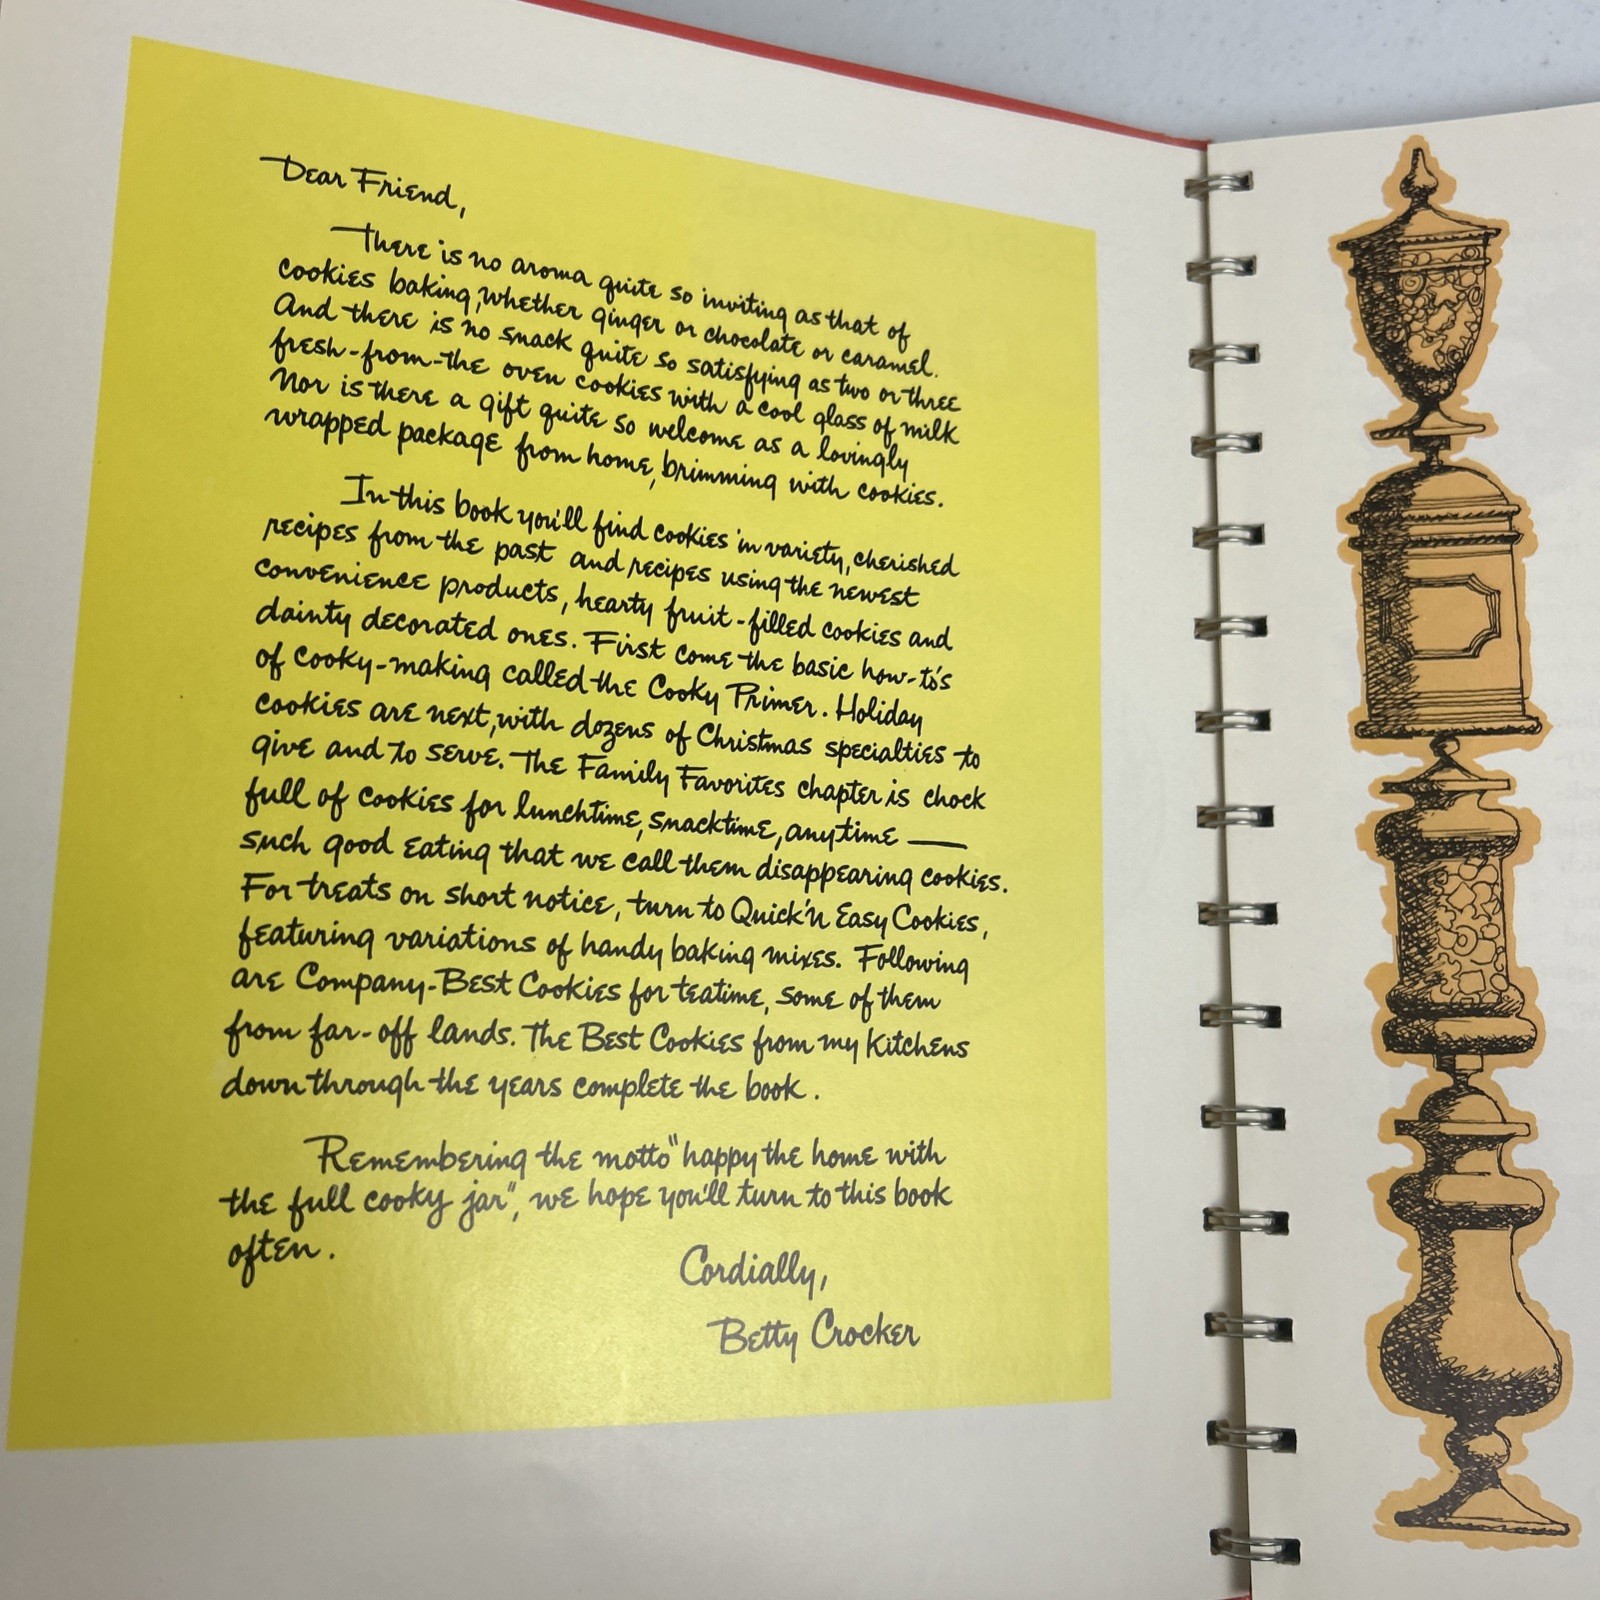 Dear Friend,
There is no aroma quite so inviting as that of
cookies baking, whether ginger or chocolate or caramel.
And there is no snack quite so satisfying as two or three
fresh-from-the oven cookies with a cool glass of milk
Nor is there a gift quite so welcome as a lovingly
wrapped package from home, brimming with cookies.
In this book you'll find cookies in variety, cherished
recipes from the past and recipes using the newest
convenience products, hearty fruit-filled cookies and
dainty decorated ones. First come the basic how-to's
of cooky-making called the Cooky Primer. Holiday
cookies are next, with dozens of Christmas specialties to
give and to serve. The Family Favorites chapter is chock
full of cookies for lunchtime, snacktime, anytime —
such good eating that we call them disappearing cookies.
For treats on short notice, turn to Quick'n Easy Cookies,
featuring variations of handy baking mixes. Following
are Company-Best Cookies for teatime, some of them
from far-off lands. The Best Cookies from my Kitchens
down through the years complete the book.
Remembering the motto "happy the home with
the full cooky jar", we hope you'll turn to this book
often.
Cordially,
Betty Crocker